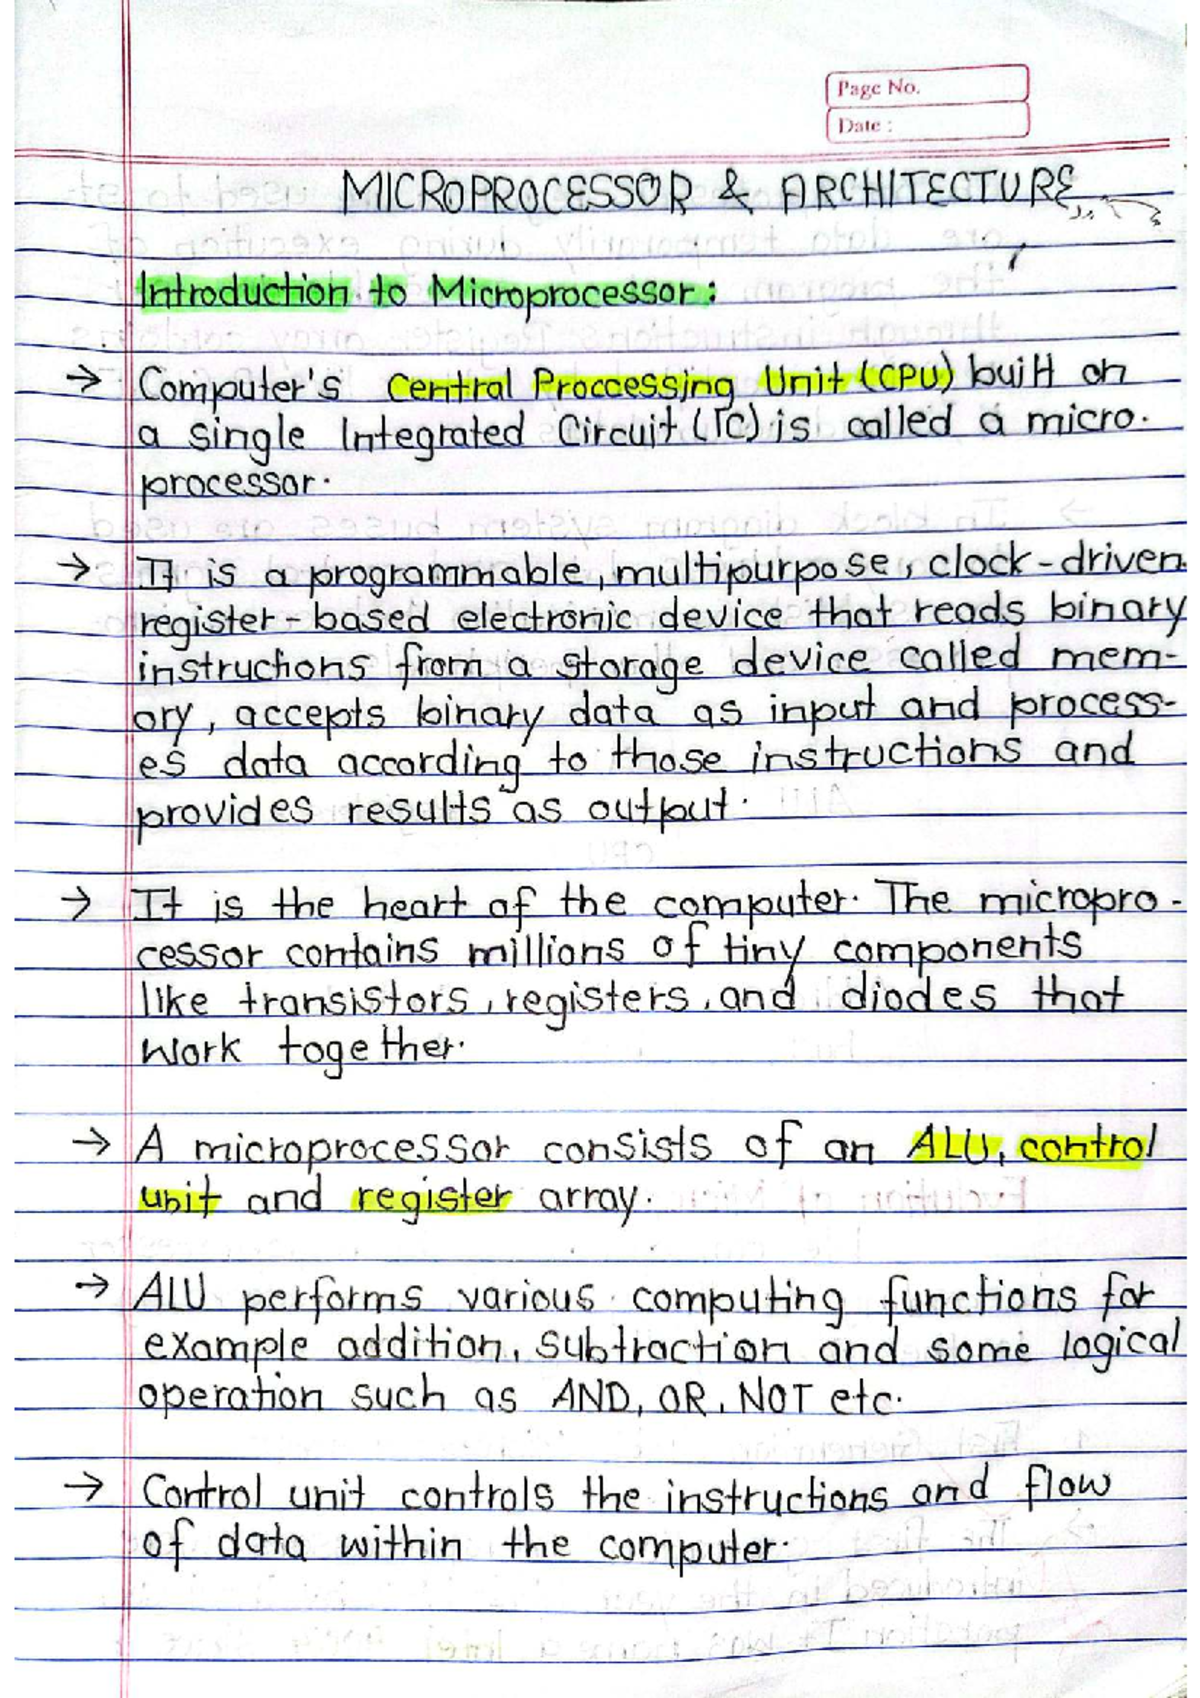 Page No.
Date :
MICROPROCESSOR & ARCHITECTURE
Introduction to Microprocessor:
→ Computer's Central Proccessing Unit (CPU) built on
a single Integrated Circuit (IC) is called a micro-
processor.
→ It is a programmable, multipurpose, clock-driven
register-based electronic device that reads binary
instructions from a storage device called mem-
ory, accepts binary data as input and process-
es data according to those instructions and
provides results as output.
→ It is the heart of the computer. The micropro-
cessor contains millions of tiny components
like transistors, registers, and diodes that
work together.
→ A microprocessor consists of an ALU, control
unit and register array.
→ ALU performs various computing functions for
example addition, subtraction and some logical
operation such as AND, OR, NOT etc.
→ Control unit controls the instructions and flow
of data within the computer.